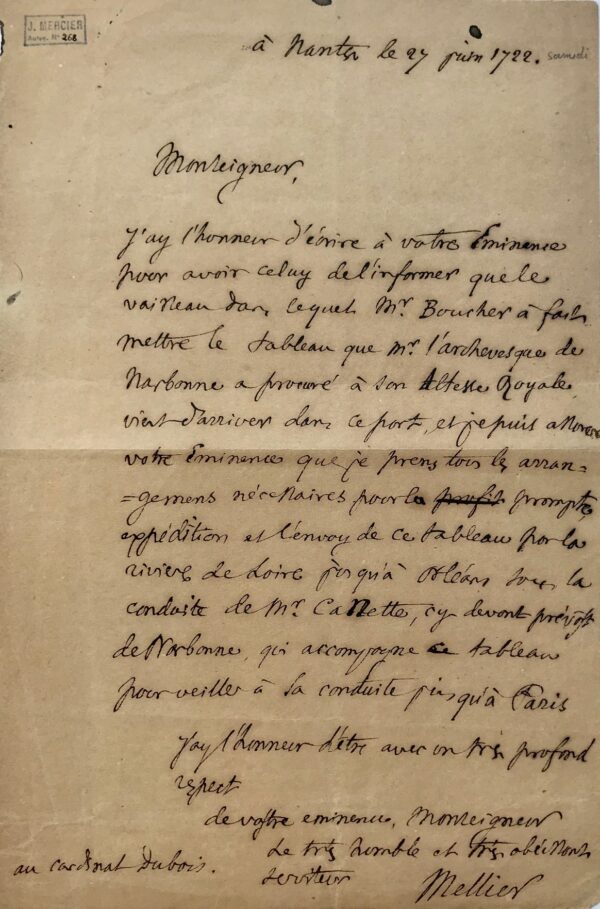 J. MERCIER
Autog. N° 268
à Nantes le 27 juin 1722. samedi
Monseigneur,
J'ay l'honneur d'écrire à votre Eminence
pour avoir celuy de l'informer que le
vaisseau dans lequel Mr. Boucher à fait
mettre le tableau que mr. l'archevesque de
Narbonne a procuré à son Altesse Royale
vient d'arriver dans ce port, et je puis assurer
votre Eminence que je prens tous les arran=
=gemens nécessaires pour la profit prompte
expédition et l'envoy de ce tableau par la
riviere de Loire jusqu'à Orléans sous la
conduite de Mr. Cassette, cy devant prévost
de Narbonne, qui accompagne ce tableau
pour veiller à sa conduite jusqu'à Paris
J'ay l'honneur d'être avec un très profond
respect
de vostre eminence, Monseigneur
Le très humble et très obéissant
au cardinal Dubois. serviteur
Mellier